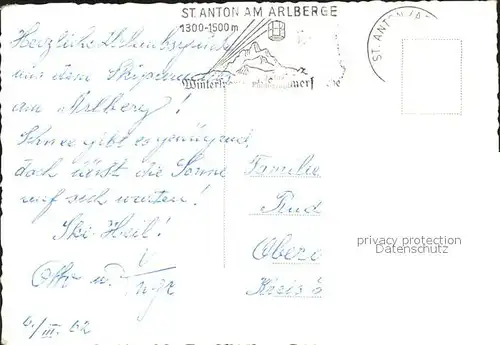 ST. ANTON AM ARLBERG
1300-1500 m
ST. ANTON
Herzliche Urlaubsgrüße
aus dem Skiparadies
am Arlberg!
Schnee gibt es genügend,
doch läßt die Sonne
auf sich warten!
Ski-Heil!
Otto u.
6./III. 62
Familie
Obere
Kreis
privacy protection
Datenschutz